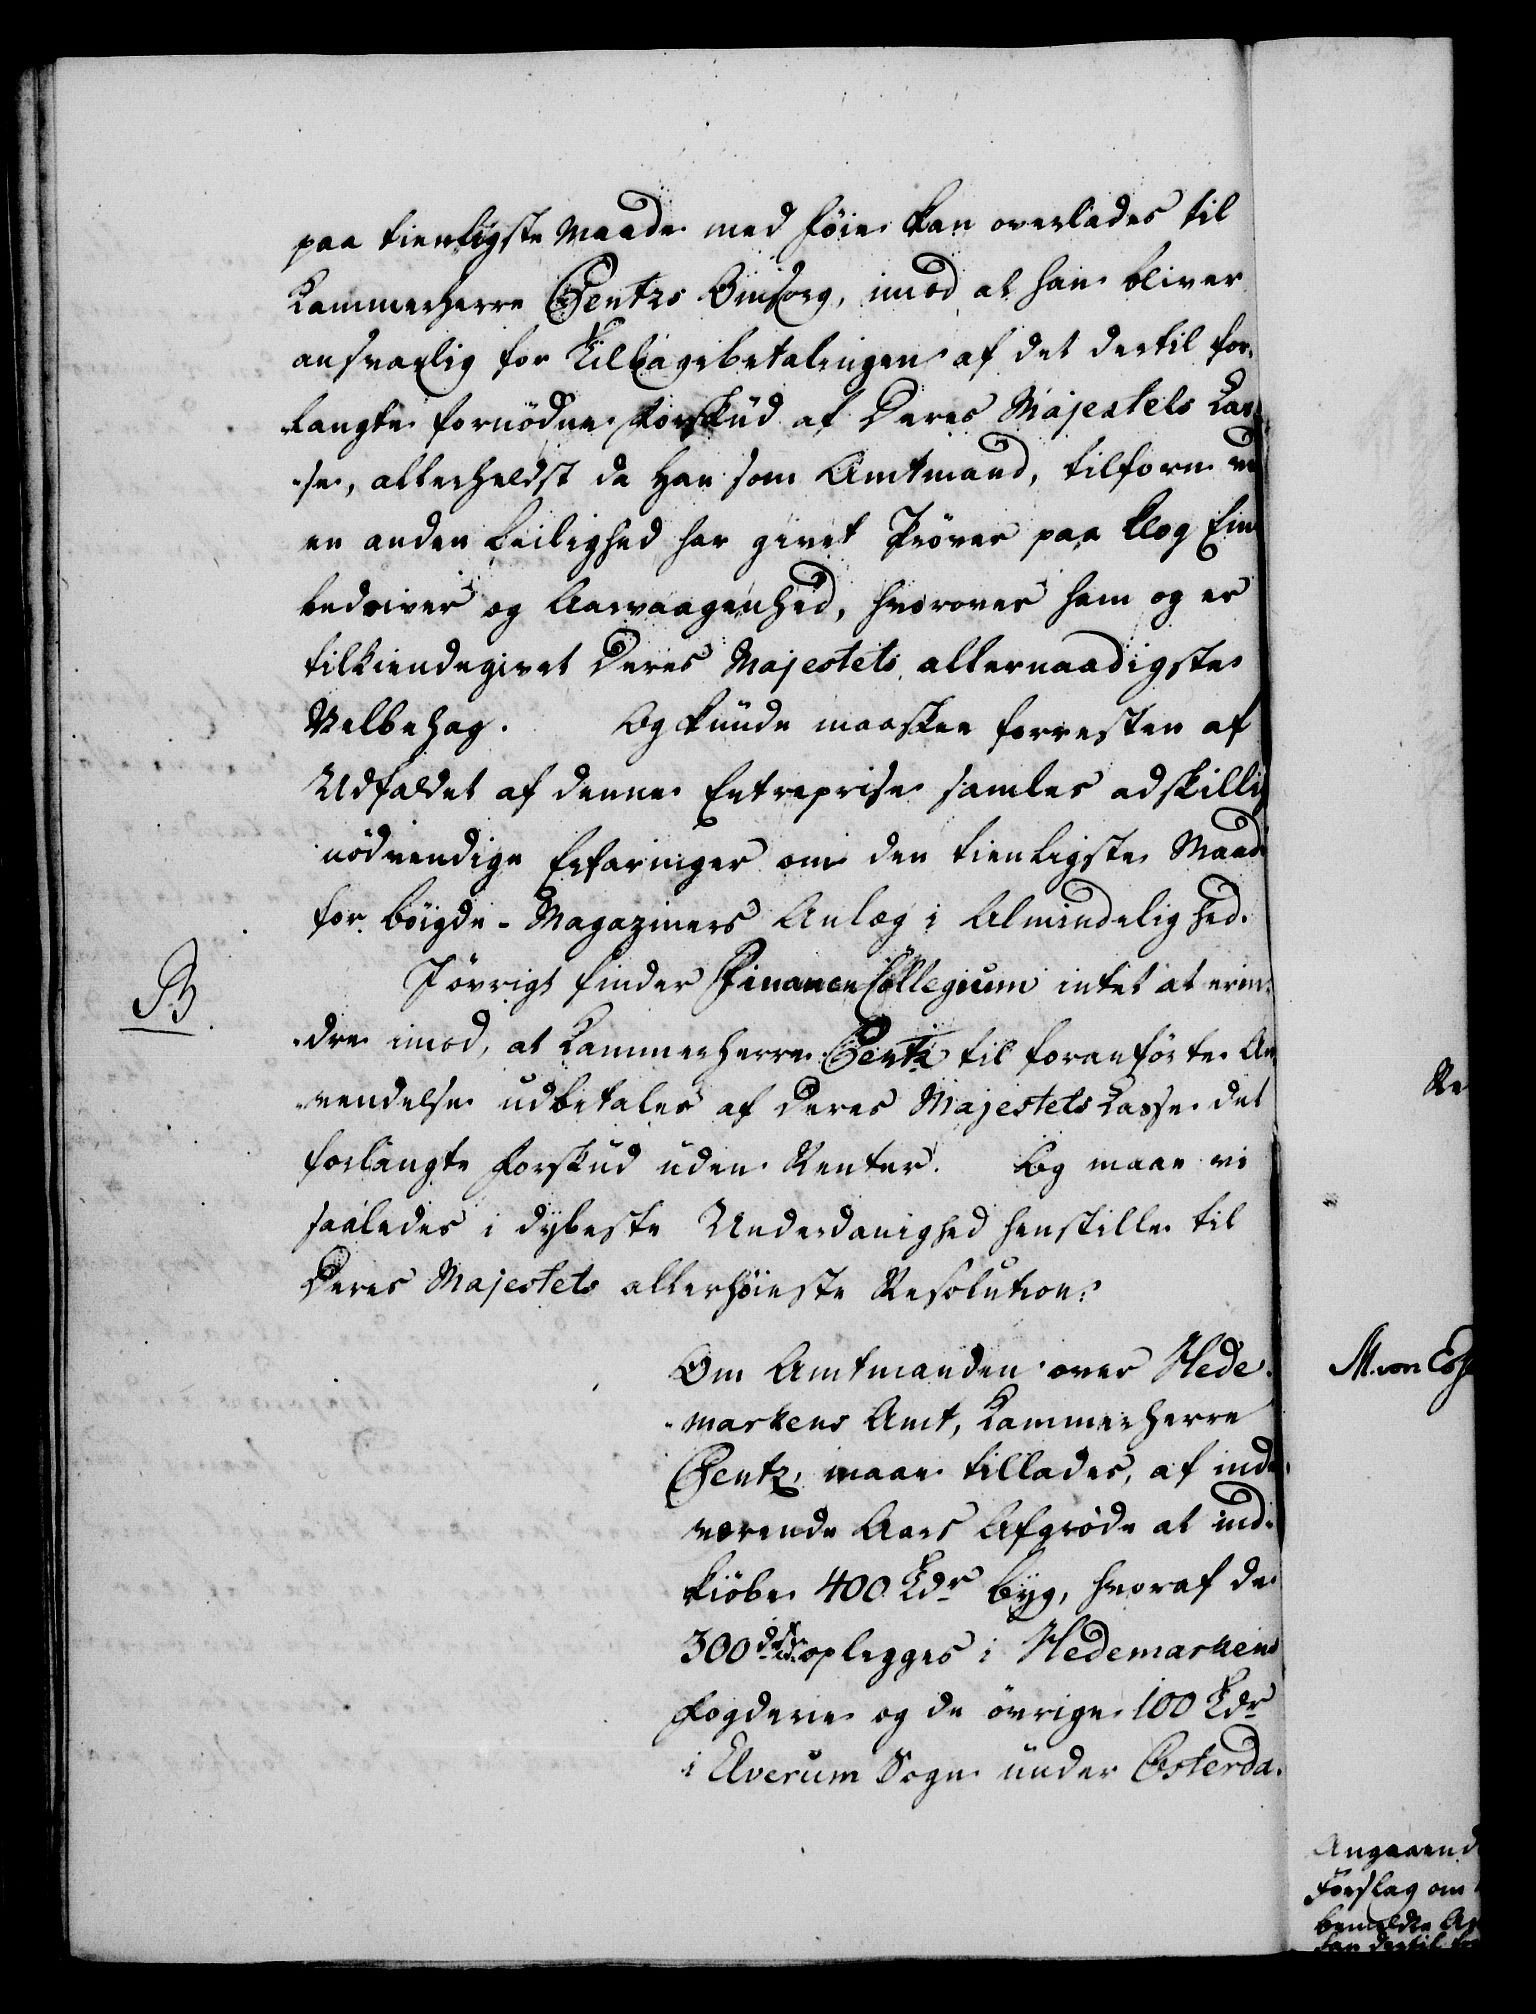 paa tienligste Maade med föie kan overlades til
Kammerherre Pentzs Omsorg, imod at han bliver
ansvarlig for Tilbagebetalingen af det dertil for-
langte fornödne Forskud af Deres Majestets Cas-
se, allerhelst da han som Amtmand, tilforn ved
en anden Leilighed har givet Pröver paa klog Em-
bedsiver og Aarvaagenhed, hvorover ham og er
tilkiendegivet Deres Majestets allernaadigste
Velbehag. Og kunde maaskee forresten af
Udfaldet af denne Entreprise samles adskillig
nödvendige Erfaringer om den tienligste Maade
for Böigde-Magaziners Anlæg i Almindelighed.
B
I övrigt finder Financecollegium intet at erin-
dre imod, at Kammerherre Pentz til foranförte An-
vendelse udbetales af Deres Majestets Casse det
forlangte Forskud uden Renter. Og maae vi
saaledes i dybeste Underdanighed henstille til
Deres Majestets allerhöieste Resolution:
Om Amtmanden over Hede-
markens Amt, Kammerherre
Pentz, maae tillades, af inde-
værende Aars Afgröde at ind-
kiöbe 400 Tdr Byg, hvoraf de
300 dr oplegges i Hedemarkens
Fogderie og de övrige 100 Tdr
i Elverum Sogn under Österda-
Re
M. von Es
Angaaend
Forslag om
bemeldte A